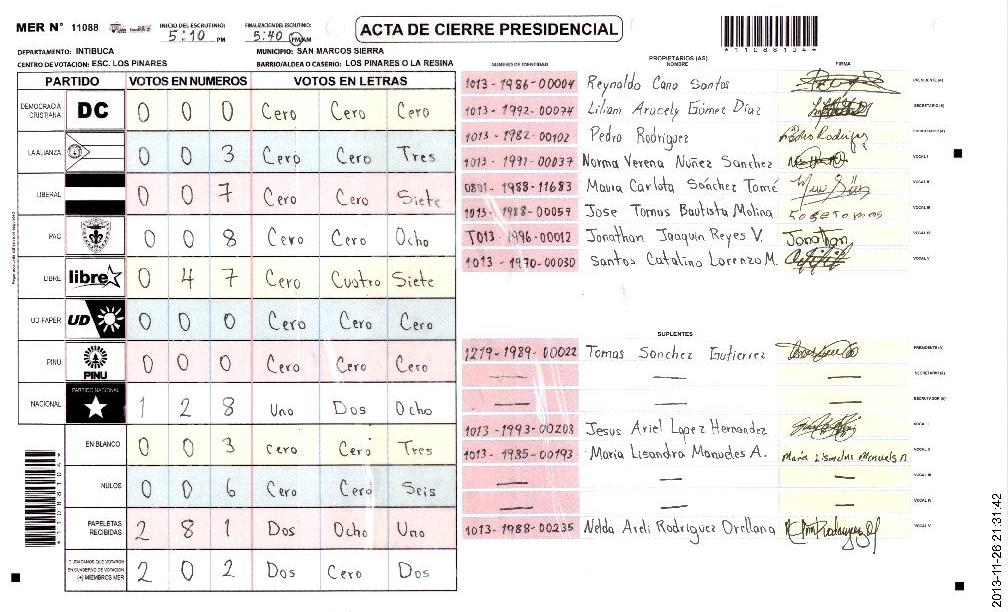 MER N° 11088
INICIO DEL ESCRUTINIO: 5:10 PM
FINALIZACION DEL ESCRUTINIO: 5:40 PM/AM
ACTA DE CIERRE PRESIDENCIAL
*11088104*
DEPARTAMENTO: INTIBUCA MUNICIPIO: SAN MARCOS SIERRA
CENTRO DE VOTACION: ESC. LOS PINARES BARRIO/ALDEA O CASERIO: LOS PINARES O LA RESINA
PARTIDO VOTOS EN NUMEROS VOTOS EN LETRAS
DEMOCRACIA CRISTIANA DC 0 0 0 Cero Cero Cero
LA ALIANZA 0 0 3 Cero Cero Tres
LIBERAL 0 0 7 Cero Cero Siete
PAC 0 0 8 Cero Cero Ocho
LIBRE libre 0 4 7 Cero Cuatro Siete
UD-FAPER UD 0 0 0 Cero Cero Cero
PINU PINU 0 0 0 Cero Cero Cero
NACIONAL PARTIDO NACIONAL 1 2 8 Uno Dos Ocho
EN BLANCO 0 0 3 cero Cero Tres
NULOS 0 0 6 Cero Cero Seis
PAPELETAS RECIBIDAS 2 8 1 Dos Ocho Uno
CIUDADANOS QUE VOTARON EN CUADERNO DE VOTACION (+) MIEMBROS MER 2 0 2 Dos Cero Dos
*11088104*
PROPIETARIOS (AS)
NUMERO DE IDENTIDAD NOMBRE FIRMA
1013-1986-00004 Reynaldo Cano Santos PRESIDENTE (A)
1013-1992-00074 Liliam Aracely Gómez Díaz SECRETARIO (A)
1013-1982-00102 Pedro Rodriguez Pedro Rodriguez ESCRUTADOR (A)
1013-1991-00037 Norma Verena Nuñez Sanchez VOCAL I
0801-1988-11683 Maura Carlota Sánchez Tomé VOCAL II
1013-1988-00059 Jose Tomas Bautista Molina VOCAL III
1013-1996-00012 Jonathan Joaquin Reyes V. Jonathan VOCAL IV
1013-1970-00030 Santos Catalino Lorenzo M. VOCAL V
SUPLENTES
1219-1989-00022 Tomas Sanchez Gutierrez PRESIDENTE (A)
— — — SECRETARIO (A)
— — — ESCRUTADOR (A)
1013-1993-00203 Jesus Ariel Lopez Hernandez VOCAL I
1013-1985-00193 Maria Lisandra Manueles A. VOCAL II
— — — VOCAL III
— — — VOCAL IV
1013-1988-00235 Nelda Areli Rodriguez Orellana VOCAL V
2013-11-26 21:31:42